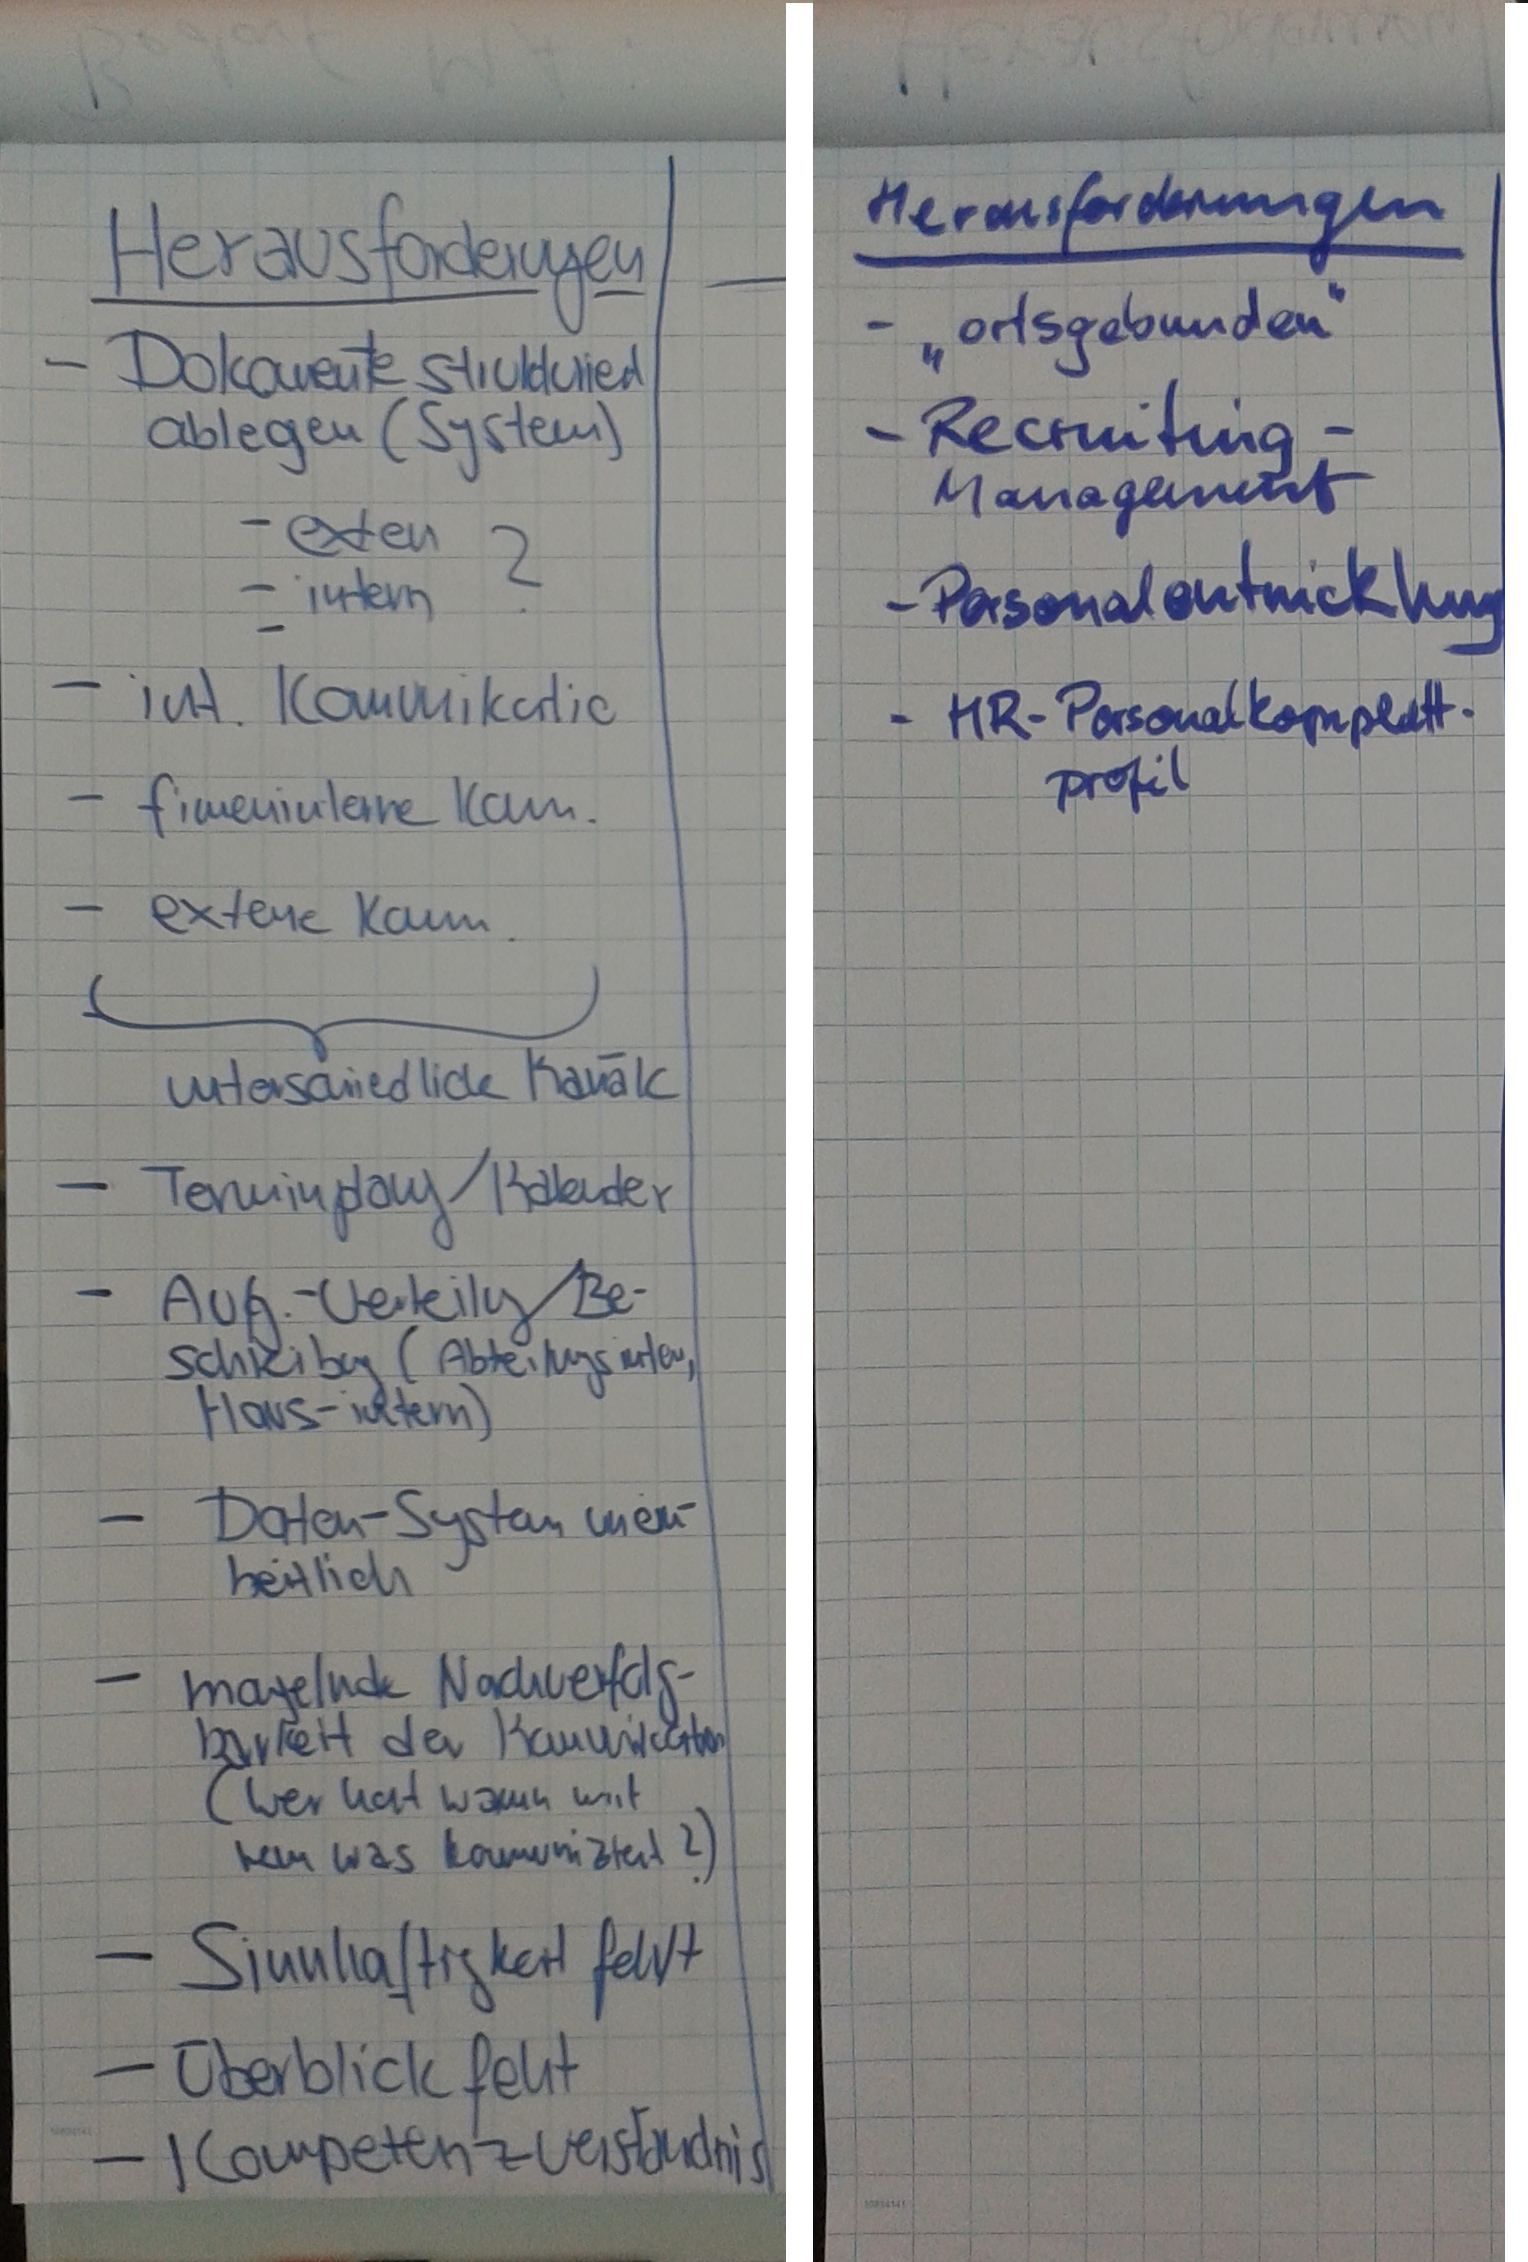 Herausforderungen
- Dokumente strukturiert
ablegen (System)
- extern ?
- intern
-
- int. Kommunikatio
- firmeninterne Komm.
- externe Komm.
unterschiedliche Kanäle
- Terminplanung/Kalender
- Aufg.-Verteilung/Be-
schreibung (Abteilungsintern,
Haus-intern)
- Daten-System unein-
heitlich
- mangelnde Nachverfolg-
barkeit der Kommunikation
(wer hat wann mit
wem was kommuniziert?)
- Sinnhaftigkeit fehlt
- Überblick fehlt
- Kompetenzverständnis
Herausforderungen
- „ortsgebunden"
- Recruiting-
Management
- Personalentwicklung
- HR-Personalkomplett-
profil